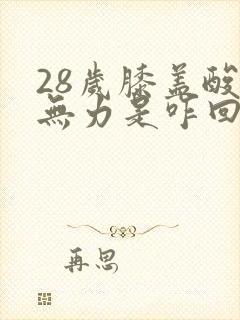 28歲膝盖酸
無力是咋回
再思